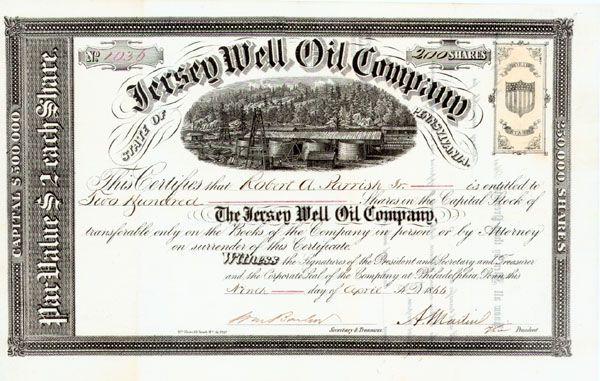 No 1036
200 SHARES
Jersey Well Oil Company
STATE OF PENNSYLVANIA
CAPITAL $500,000
Par Value $2 each Share.
250,000 SHARES
This Certifies that Robert A. Parrish Jr. is entitled to
Two Hundred Shares in the Capital Stock of
The Jersey Well Oil Company,
transferable only on the Books of the Company in person or by Attorney
on surrender of this Certificate.
Witness the Signatures of the President and Secretary and Treasurer
and the Corporate Seal of the Company at Philadelphia, Penn, this
Ninth day of April A.D. 1866
Secretary & Treasurer.
President